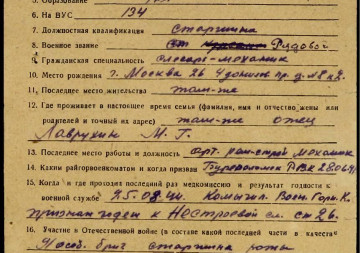 5. Образование
6. На ВУС 134
7. Должностная квалификация старшина
8. Военное звание Рядовой
9. Гражданская специальность слесарь-механик
10. Место рождения г. Москва 26
11. Последнее место жительства там-же
12. Где проживает в настоящее время семья (фамилия, имя и отчество жены или
родителей и точный их адрес) там-же отец
Лаврухин М. Г.
13. Последнее место работы и должность механик
14. Каким райгорвоенкоматом и когда призван РВК
15. Когда и где проходил последний раз медкомиссию и результат годности к
военной службе 25.08.44. Воен. Горн. К.
признан годен к Нестроевой сл. ст 26.
16. Участие в Отечественной войне (в составе какой последней части и в качестве
старшина роты